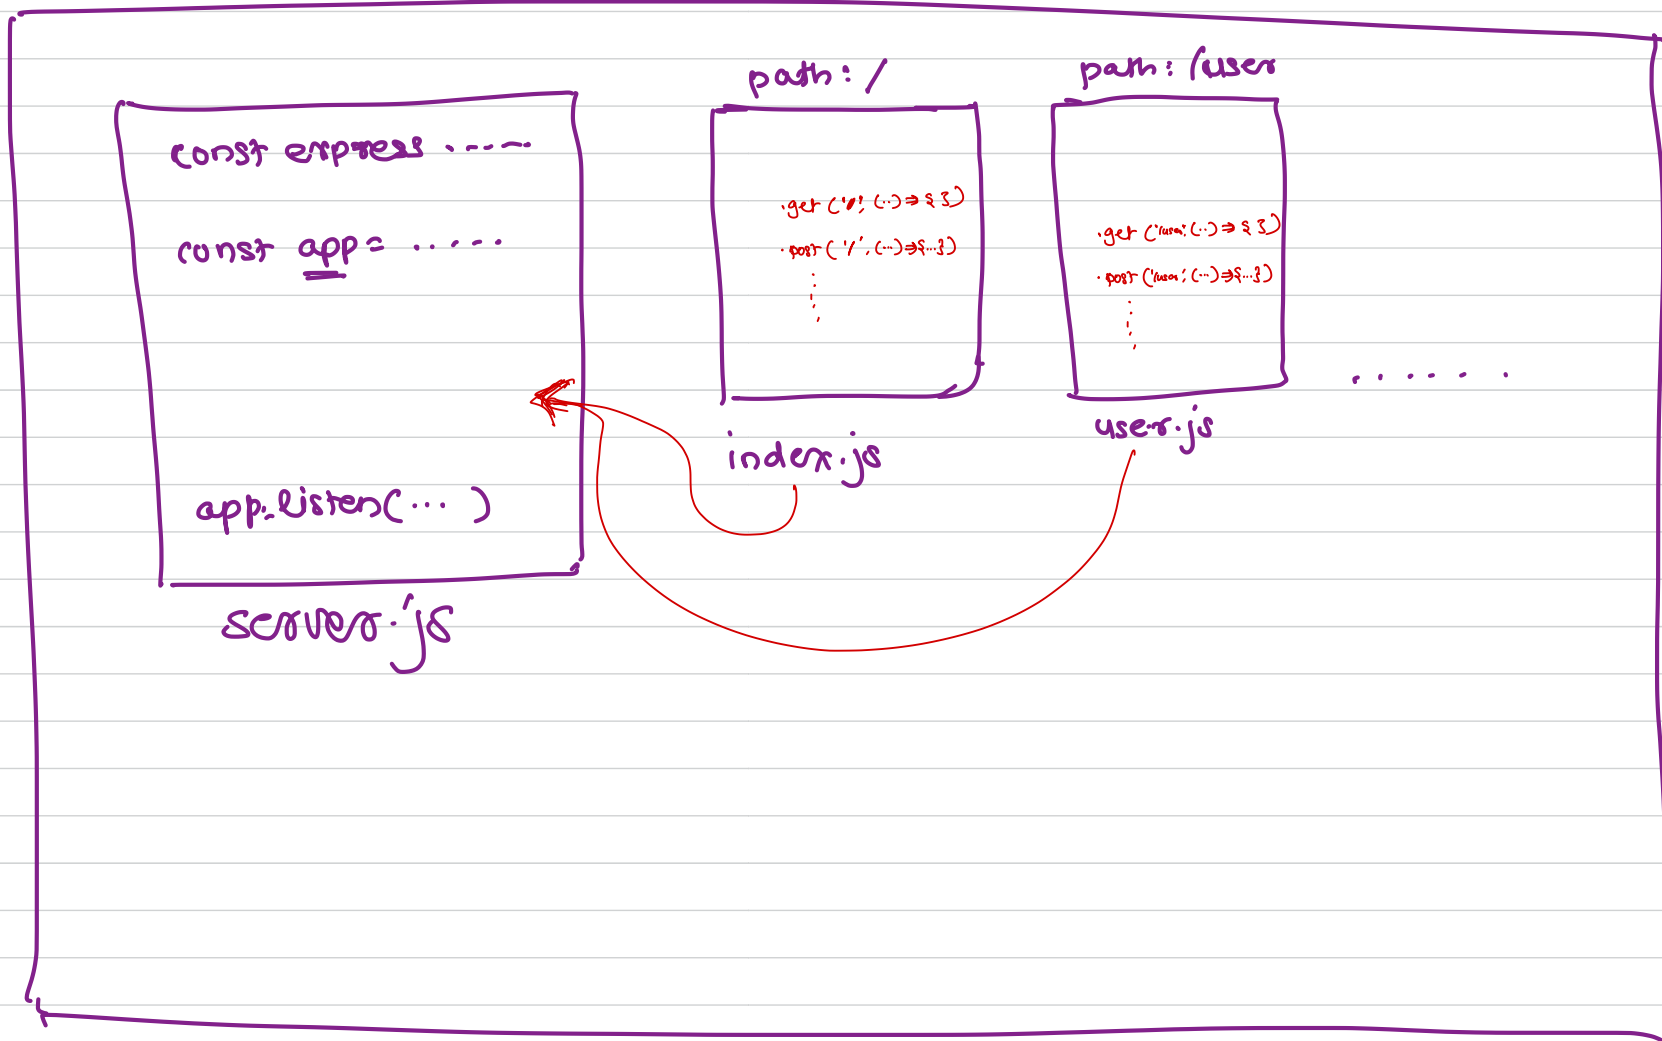 const express ------
const app = ......
app.listen(... )
server.js
path: /
.get ('/', (..) => { })
.post ('/', (...) => {...})
index.js
path: /user
.get ('/user', (..) => { })
.post ('/user', (...) => {...})
user.js
......